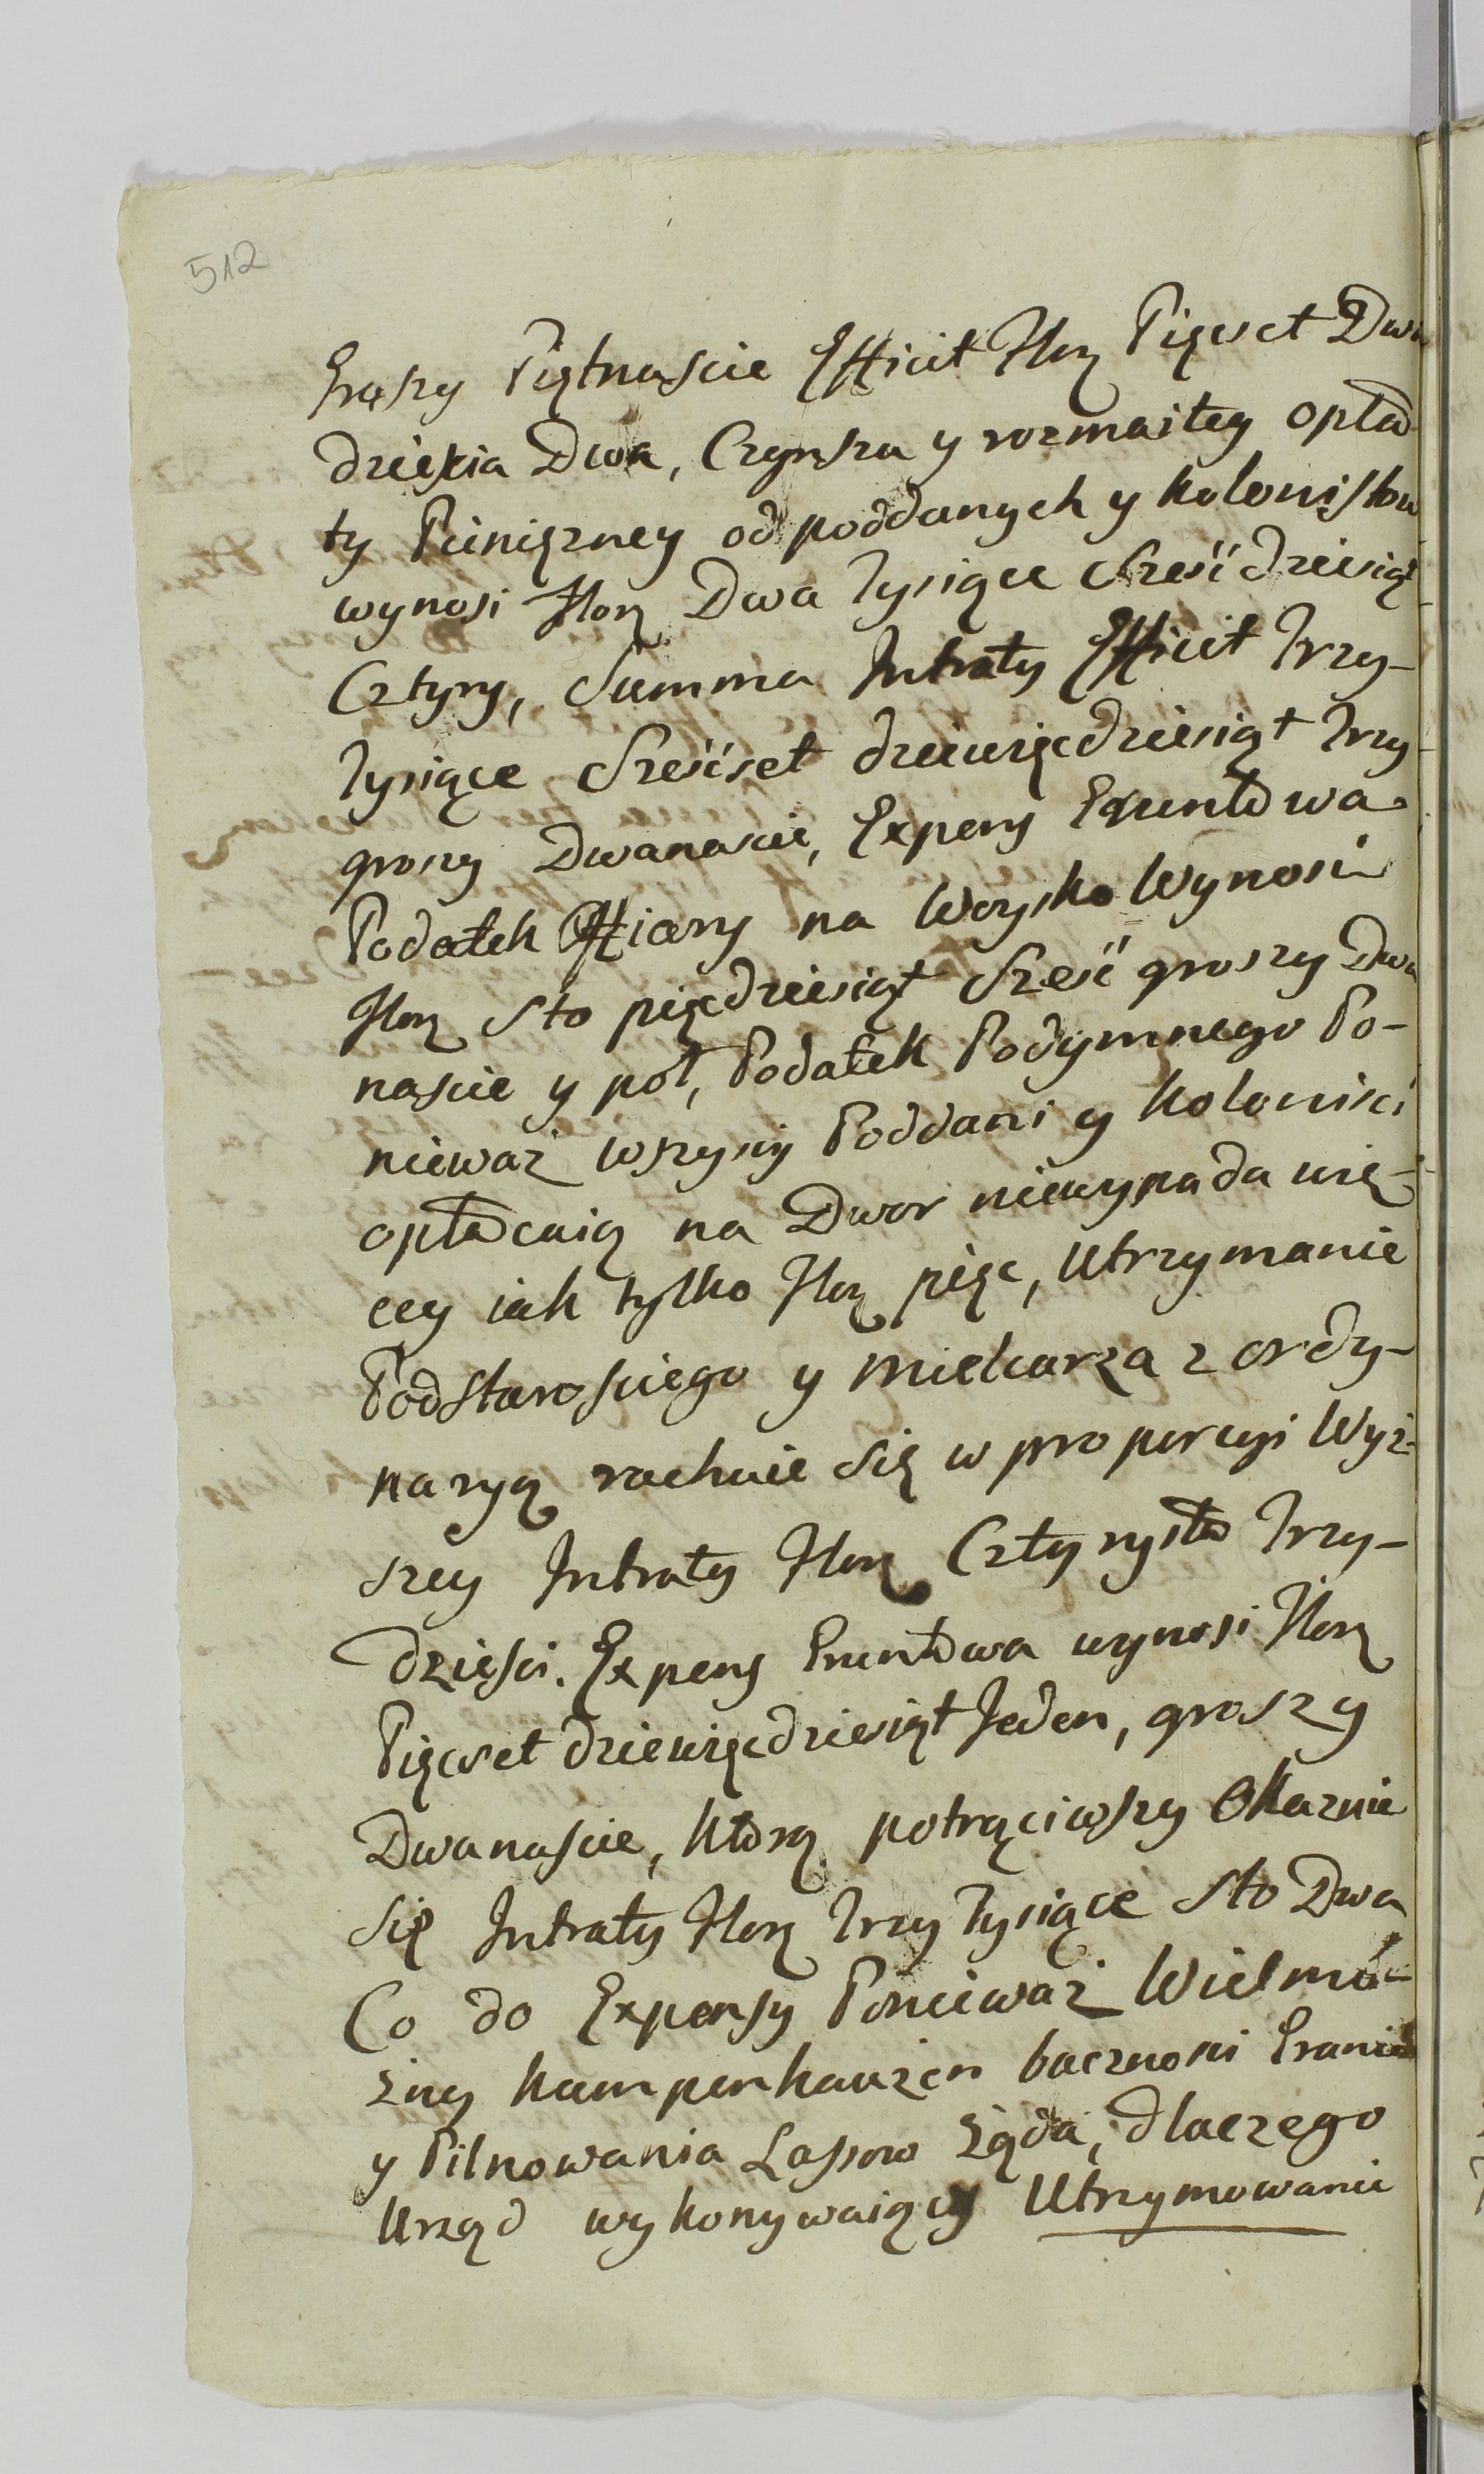 512
Groszy Piętnascie Efficit Flor Pięcset Dwa
dziescia Dwa, Czynszu y rozmaitey opła
ty Pieniężney od poddanych y kolonistow
wynosi Flor Dwa Tysiące Sześćdziesiąt
Cztyry, Summa Intraty Efficit Trzy-
Tysiące Sześćset dziewięcdziesiąt Trzy
groszy Dwanascie, Expens Gruntowa
Podatek Offiary na Woysko Wynosi
Flor Sto pięcdziesiąt Sześć groszy Dwa
nascie y poł, Podatek Podymnego Po-
nieważ wszyscy Poddani y Kolonisci
opłacaią na Dwor niewypada wię-
cey iak tylko Flor pięc, Utrzymanie
Podstarosciego y mielcarza z ordy-
naryą rachuie się w proporcyi Wyż-
szey Intraty Flor Cztyrysta Trzy-
dziesci. Expens Gruntowa wynosi Flor
Pięcset dziewięcdziesiąt Jeden, groszy
Dwanascie, ktorą potrąciwszy Okaznie
Się Intraty Flor Trzy Tysiące Sto Dwa
Co do Expensy Ponieważ Wielmo-
żny Kamperhauzen bacznosci Granic
y Pilnowania Lassow Żąda, dlaczego
Urząd wykonywaiący Utrzymowanie